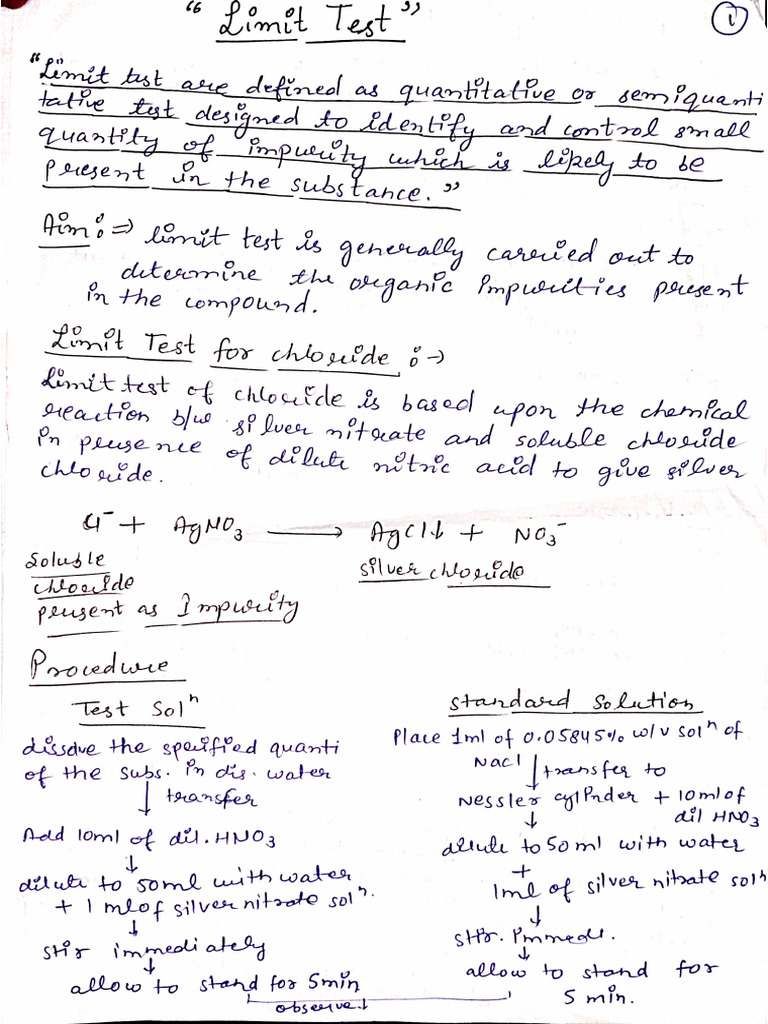 "Limit Test"
1
"Limit test are defined as quantitative or semiquanti
tative test designed to identify and control small
quantity of impurity which is likely to be
present in the substance."
Aim :⇒ limit test is generally carried out to
determine the organic Impurities present
in the compound.
Limit Test for chloride :→
Limit test of chloride is based upon the chemical
reaction b/w silver nitrate and soluble chloride
in presence of dilute nitric acid to give silver
chloride.
Cl⁻ + AgNO₃ ⟶ AgCl↓ + NO₃⁻
Soluble chloride present as Impurity
silver chloride
Procedure
Test Solⁿ
dissolve the specified quanti
of the subs. in dis. water
↓ transfer
Add 10ml of dil. HNO₃
↓
dilute to 50ml with water
+ 1 ml of silver nitrate solⁿ.
↓
stir immediately
↓
allow to stand for 5min
Standard Solution
Place 1ml of 0.05845% w/v solⁿ of
NaCl ↓ transfer to
Nessler cylinder + 10ml of
dil HNO₃
↓
dilute to 50ml with water
+
1ml of silver nitrate solⁿ
↓
stir. immedi.
↓
allow to stand for
5 min.
observe↓